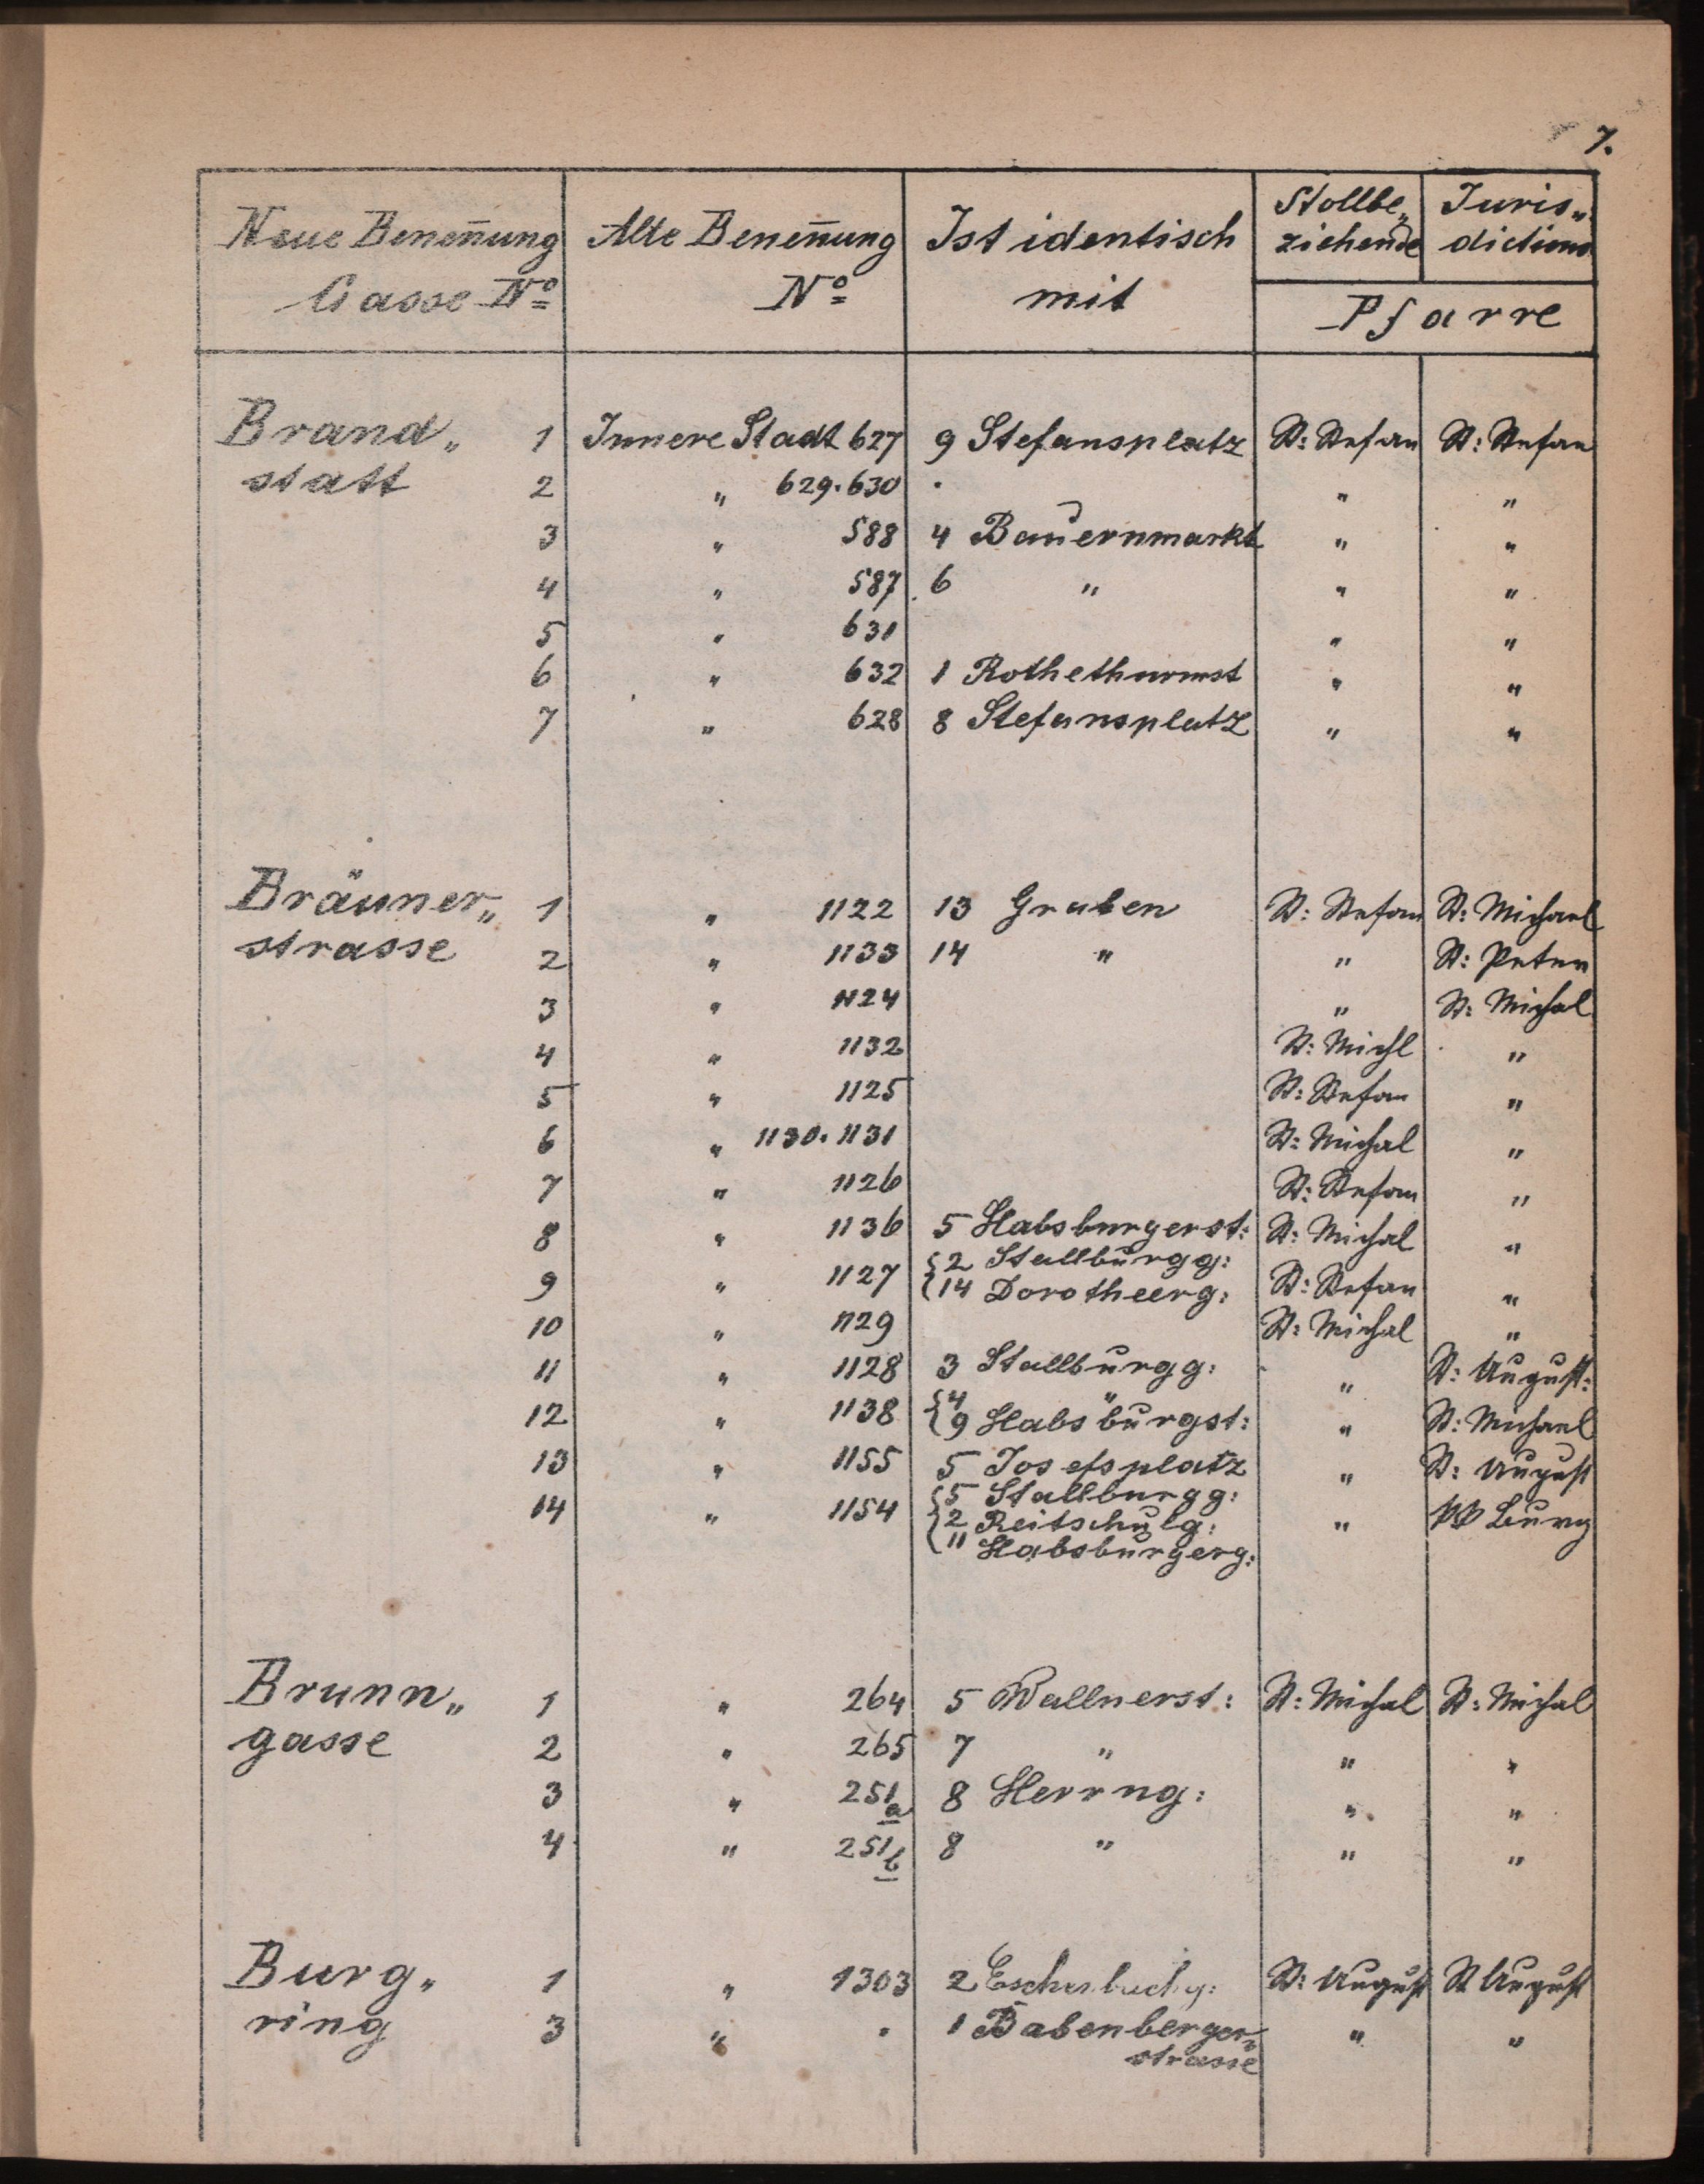 7.
Neue Benen̄ung Alte Benen̄ung Ist identisch Stollbe„ Juris„
ziehende dictions
Gasse No No mit Pfarre
Brand„ 1 Innere Stadt 627 9 Stefansplatz St: Stefan St: Stefan
statt 2 „ 629.630 . „ „
3 „ 588 4 Bauernmarkt „ „
4 „ 587 6 „ „ „
5 „ 631 „ „
6 „ 632 1 Rothethurmst „ „
7 „ 628 8 Stefansplatz „ „
Bräuner„ 1 „ 1122 13 Graben St: Stefan St: Michael
strasse 2 „ 1133 14 „ „ St: Peter
3 „ 1124 „ St: Michal
4 „ 1132 St: Michl „
5 „ 1125 St: Stefan „
6 „ 1130.1131 St: Michal „
7 „ 1126 St: Stefan „
8 „ 1136 5 Habsburgerst: St: Michal „
{2 Stallburgg:
9 „ 1127 {14 Dorotheerg: St: Stefan „
10 „ 1129 St: Michal „
11 „ 1128 3 Stallburgg: „ St: August:
{4 „
12 „ 1138 {9 Habsburgst: „ St: Michael
13 „ 1155 5 Josefsplatz „ St: August
{5 Stallburgg:
14 „ 1154 {2 Reitschulg: „ Burg
{11 Habsburgerg:
Brunn„ 1 „ 264 5 Wallnerst: St: Michal St: Michal
gasse 2 „ 265 7 „ „ „
3 „ 251a 8 Herrng: „ „
4 „ 251b 8 „ „ „
Burg„ 1 „ 1303 2 Eschenbachg: St: August St August
ring 3 „ . 1 Babenberger„ „ „
strasse